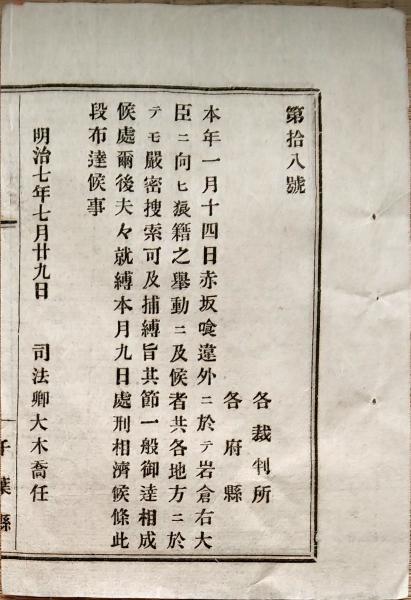 第拾八號
各裁判所
各府縣
本年一月十四日赤坂喰違外ニ於テ岩倉右大
臣ニ向ヒ狼籍之舉動ニ及候者共各地方ニ於
テモ嚴密捜索可及捕縛旨其節一般御達相成
候處爾後夫々就縛本月九日處刑相濟候條此
段布達候事
明治七年七月廿九日　司法卿大木喬任
千葉縣